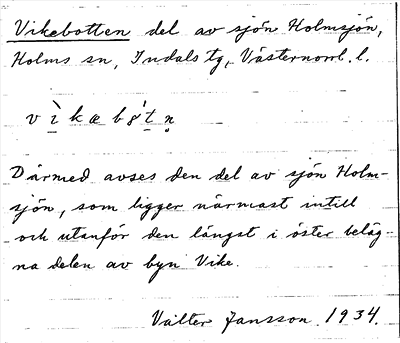 Vikebotten del av sjön Holmsjön,
Holms sn, Indals tg, Västernorrl. l.
Därmed avses den del av sjön Holm-
sjön, som ligger närmast intill
och utanför den längst i öster beläg-
na delen av byn Vike.
Valter Jansson 1934.